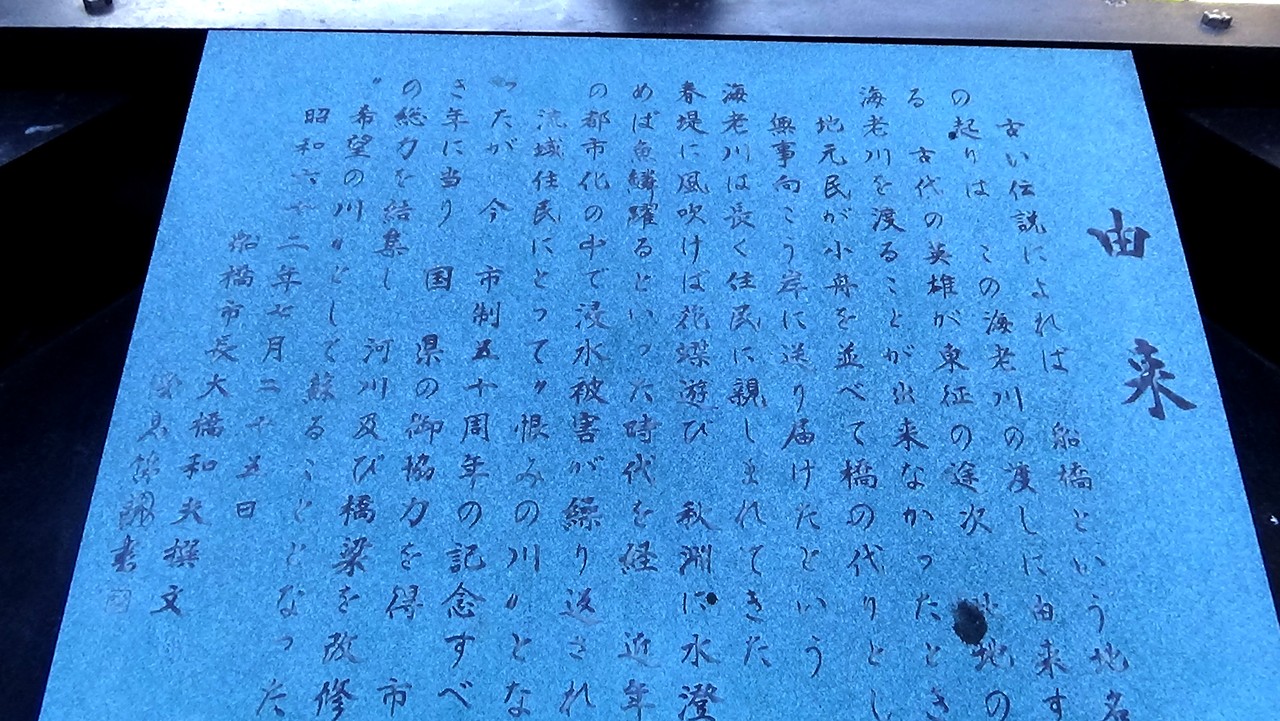 由来
古い伝説によれば 船橋という地名
の起りは この海老川の渡しに由来す
る 古代の英雄が東征の途次 地の
海老川を渡ることが出来なかったとき
地元民が小舟を並べて橋の代りとし
無事向こう岸に送り届けたという
海老川は長く住民に親しまれてきた
春堤に風吹けば花蝶遊び 秋淵に水澄
めば魚鱗躍るといった時代を経 近年
の都市化の中で浸水被害が繰り返され
流域住民にとって〃恨みの川〃とな
ったが 今 市制五十周年の記念すべ
き年に当り 国 県の御協力を得 市
の総力を結集し 河川及び橋梁を改修
〃希望の川〃として蘇ることとなった
昭和六十二年七月二十五日
船橋市長大橋和夫撰文
書